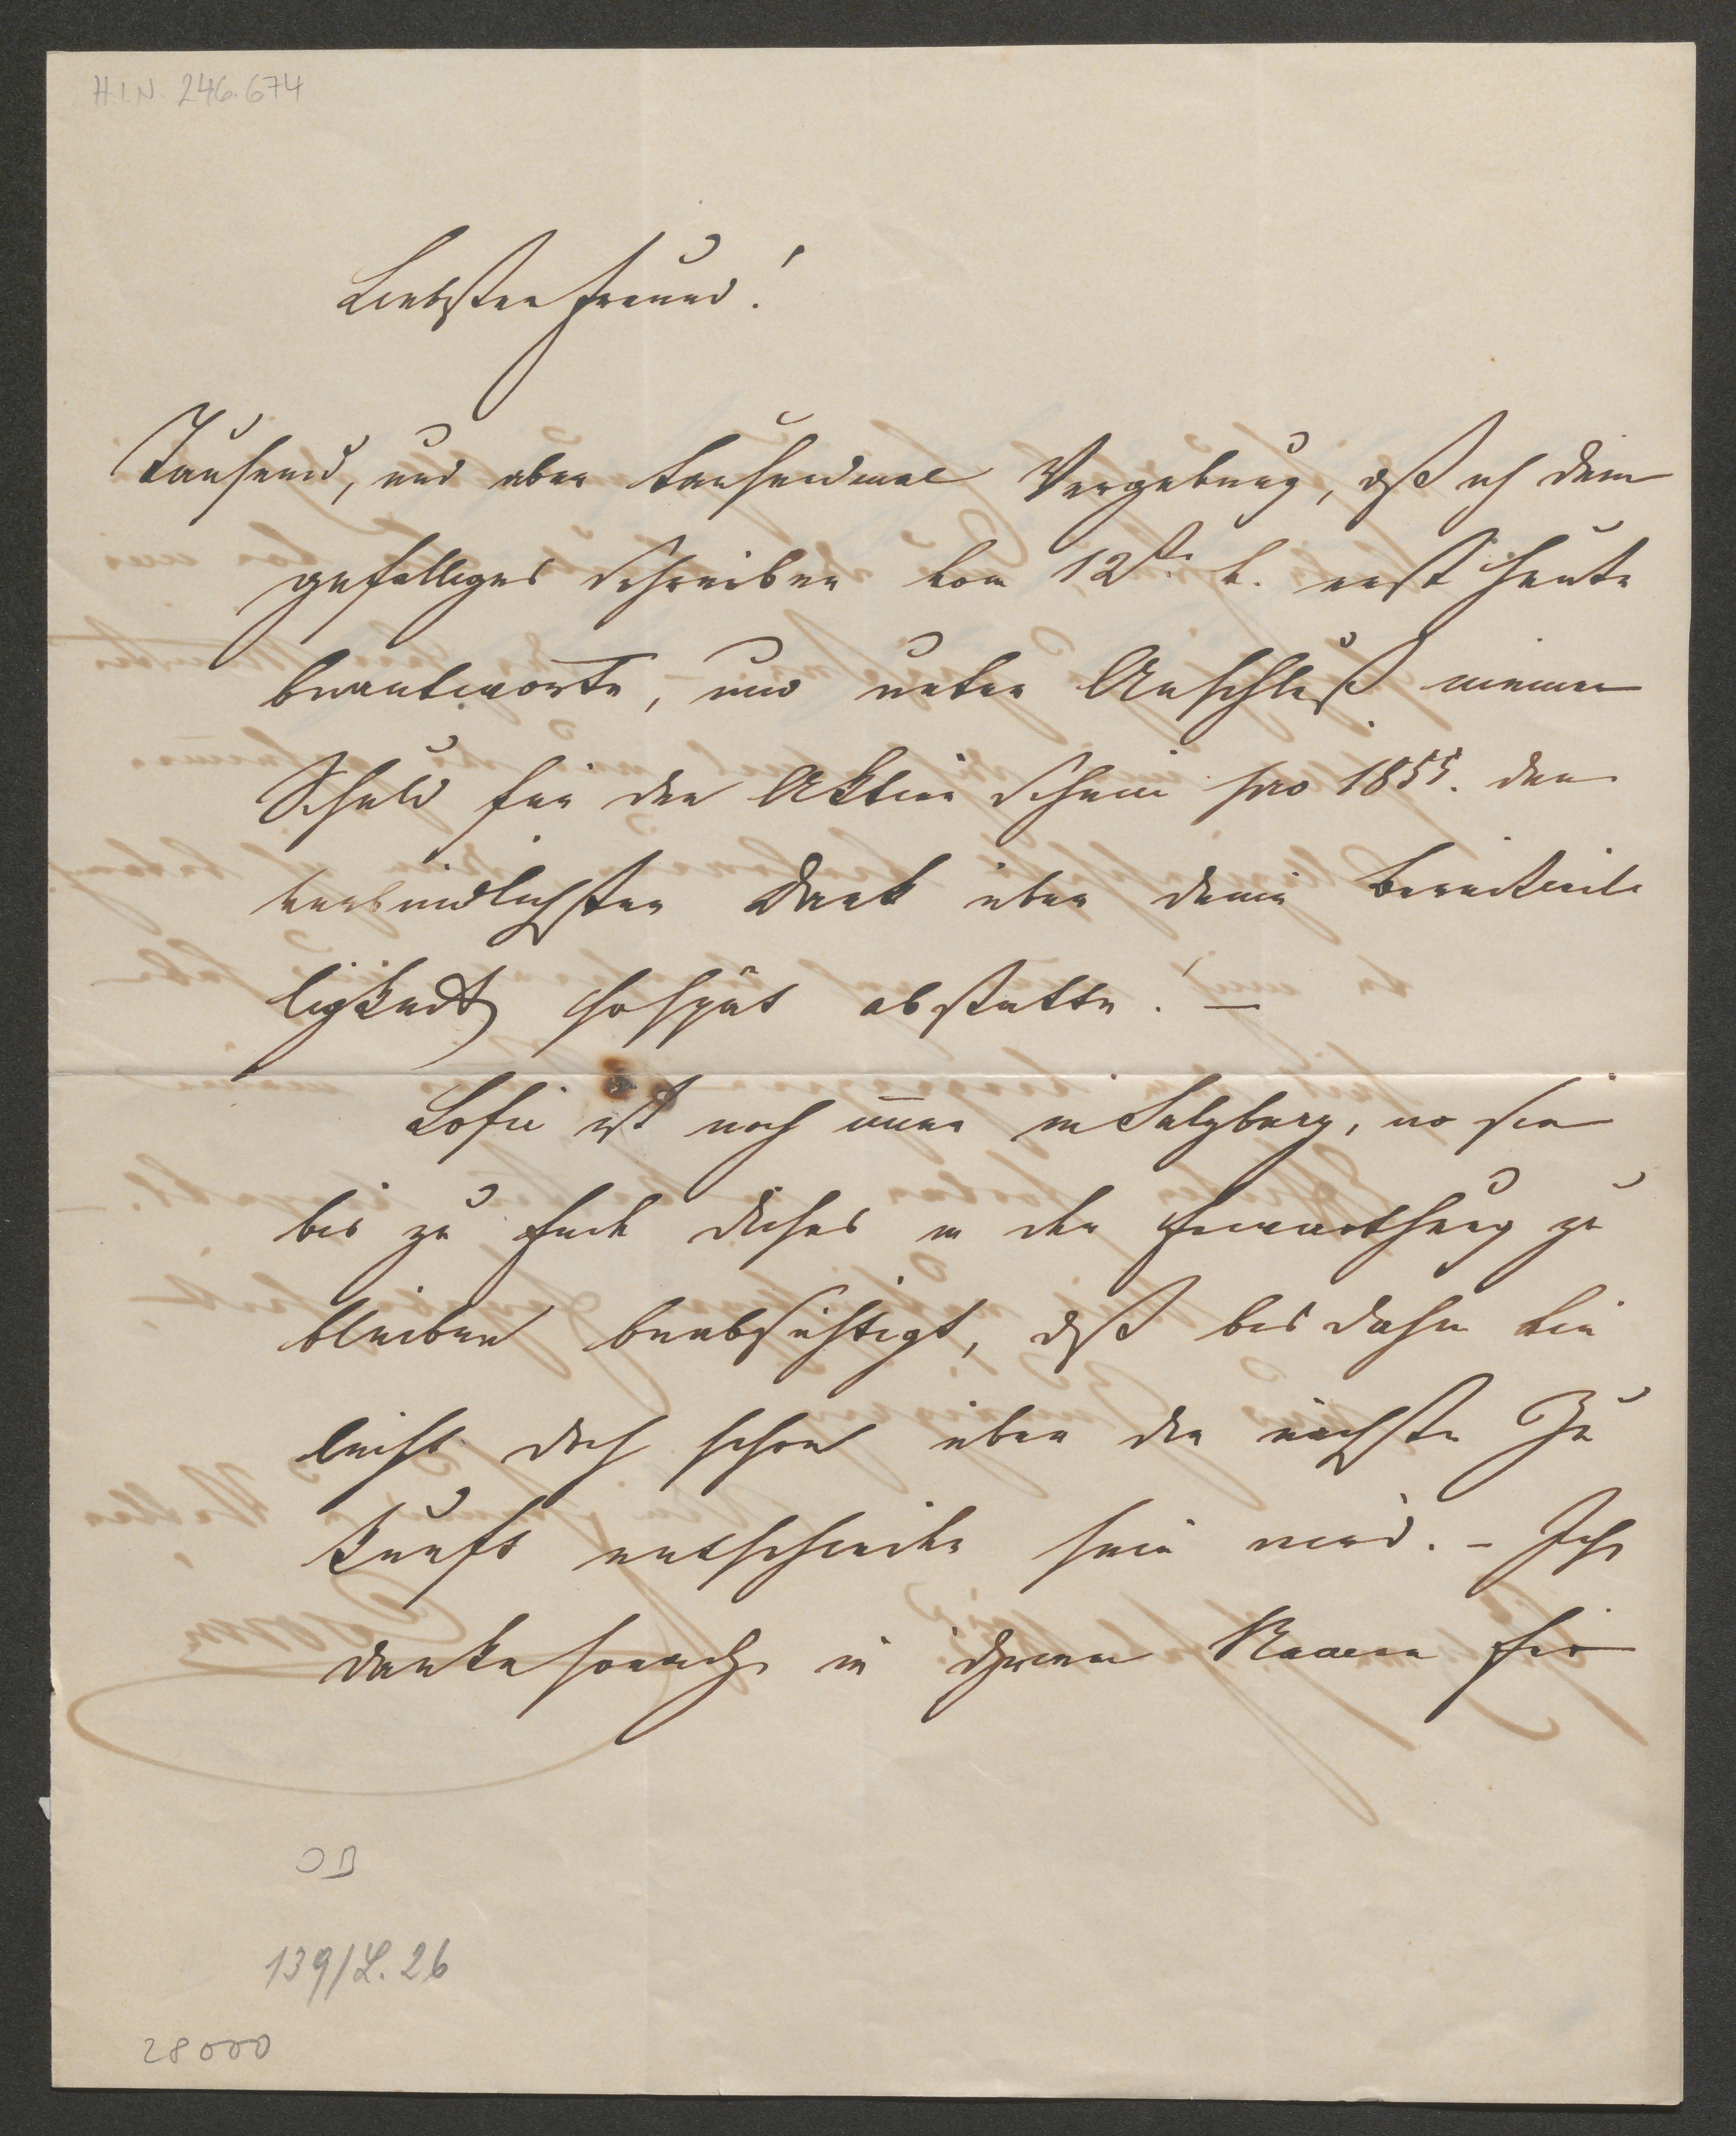 H.I.N. 246.674
Liebster Freund!
Tausend, und aber tausendmal Vergebung, daß ich dein
gefälliges Schreiben vom 12t. d. erst heute
beantworte, und unter Anschluß meiner
Schuld für den Aktien Schein pro 1855. den
verbindlichsten Dank über deine Bereitwil
ligkeit so spät abstatte! —
Sofie ist noch immer in Salzburg, wo sie
bis zu Ende dieses in der Erwarthung zu
bleiben beabsichtigt, daß bis dahin
leicht doch schon über die nächste Zu
kunft entschieden sein wird. – Ich
danke sonach in ihrem Namen für
OB
139/L. 26
28000